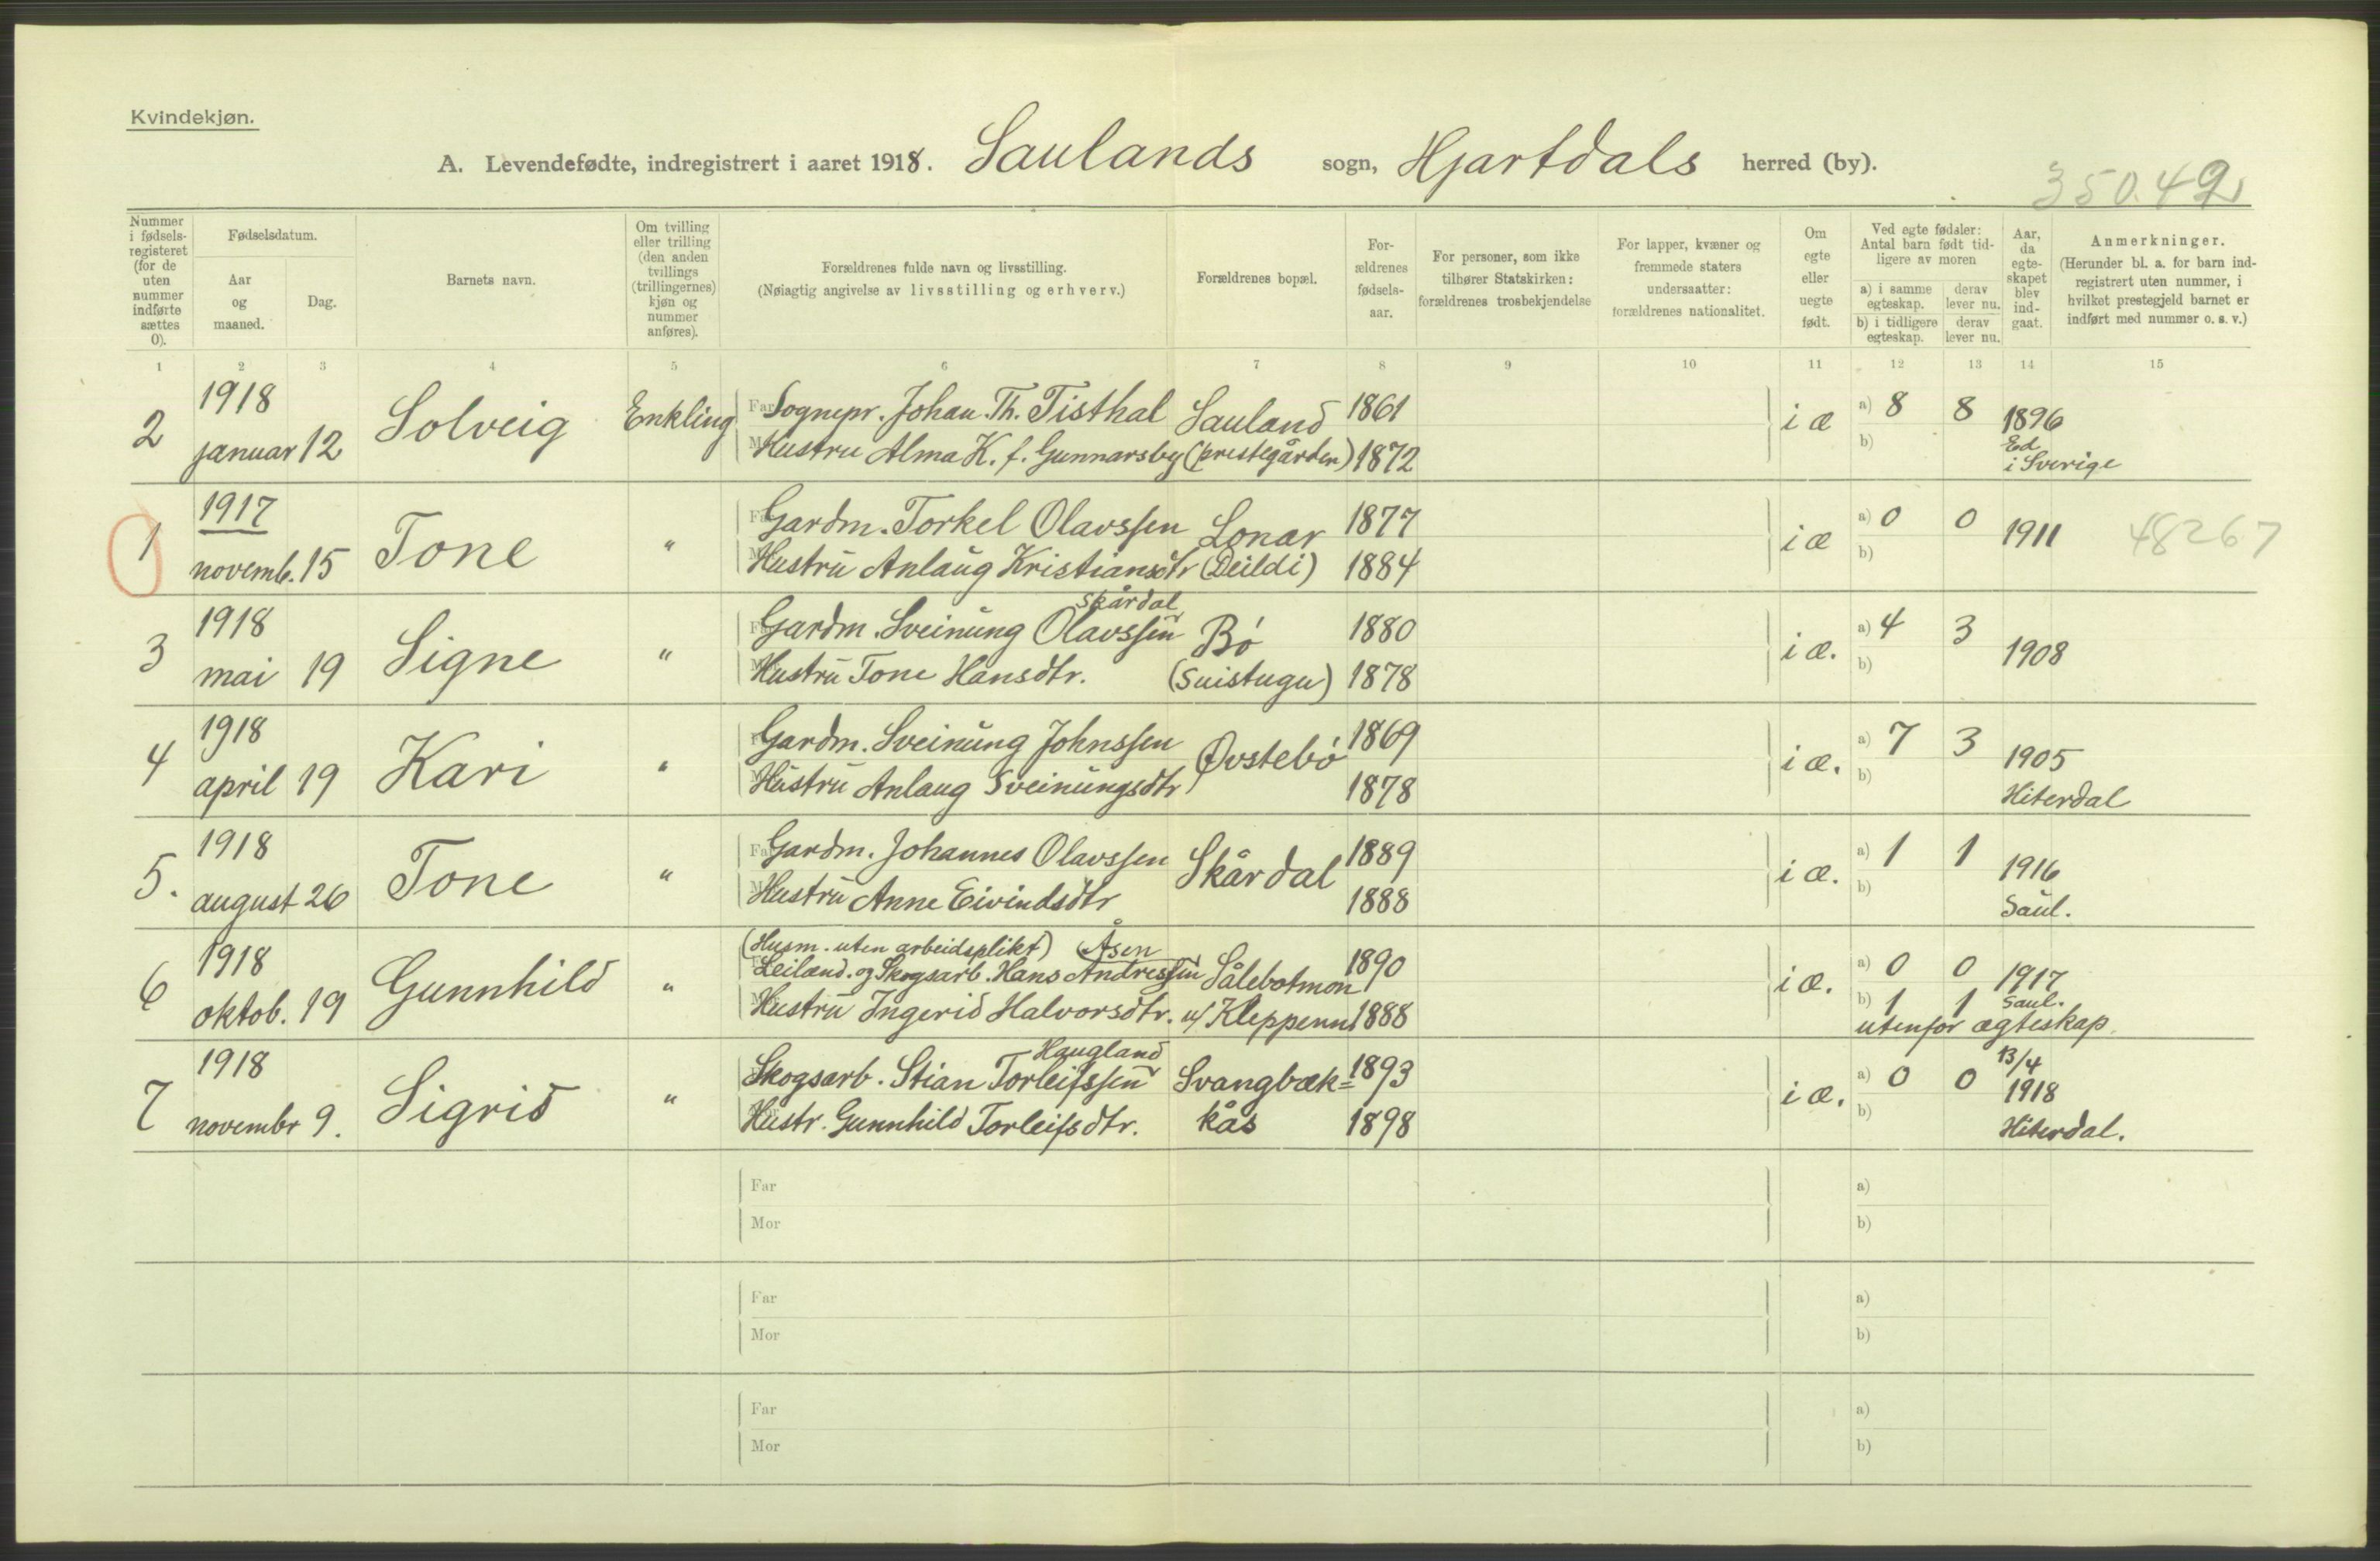 Kvindekjøn.
A. Levendefødte, indregistrert i aaret 1918. Saulands sogn, Hjartdals herred (by).
350.49
Nummer i fødsels-registeret (for de uten nummer indførte sættes 0).
Fødselsdatum.
Aar og maaned.
Dag.
Barnets navn.
Om tvilling eller trilling (den anden tvillings (trillingernes) kjøn og nummer anføres).
Forældrenes fulde navn og livsstilling.
(Nøiagtig angivelse av livsstilling og erhverv.)
Forældrenes bopæl.
For-ældrenes fødsels-aar.
For personer, som ikke tilhører Statskirken: forældrenes trosbekjendelse
For lapper, kvæner og fremmede staters undersaatter: forældrenes nationalitet.
Om egte eller uegte født.
Ved egte fødsler: Antal barn født tid-ligere av moren
a) i samme egteskap. derav lever nu.
b) i tidligere egteskap. derav lever nu.
Aar, da egte-skapet blev ind-gaat.
Anmerkninger.
(Herunder bl. a. for barn ind-registrert uten nummer, i hvilket prestegjeld barnet er indført med nummer o. s. v.)
1 2 3 4 5 6 7 8 9 10 11 12 13 14 15
2 1918 januar 12 Solveig Enkling
Far Sognepr. Johan. Th. Tisthal Sauland 1861 i æ a) 8 8 1896
Hustru Alma K. f. Gunnarsby (prestegården) 1872 b) Ed i Sverige
1 1917 novemb. 15 Tone "
Gardm. Torkel Olavssen Lonar 1877 i æ a) 0 0 1911 48267
Hustru Anlaug Kristiansdtr (Deildi) 1884 b)
3 1918 mai 19 Signe "
Skårdal
Gardm. Sveinung Olavssen Bó 1880 i æ. a) 4 3 1908
Hustru Tone Hansdtr. (Suistugu) 1878 b)
4 1918 april 19 Kari "
Gardm. Sveinung Johnssen Øvstebó 1869 i æ. a) 7 3 1905
Hustru Anlaug Sveinungsdtr 1878 b) Hiterdal
5. 1918 august 26 Tone "
Far Gardm. Johannes Olavssen Skårdal 1889 i æ. a) 1 1 1916
Hustru Anne Eivindsdtr 1888 b) Saul.
6 1918 oktob. 19 Gunnhild "
(Husm. uten arbeidsplikt) Åsen
Leilænd. og Skogsarb. Hans Andressen Sålebotmon 1890 i æ. a) 0 0 1917
Hustru Ingerid Halvorsdtr. u/ Kleppenn 1888 b) 1 1 Saul.
utenfor ægteskap.
7 1918 novembr 9. Sigrid "
Haugland
Skogsarb. Stian Torleifssen Svangbæk= 1893 i æ. a) 0 0 13/4 1918
Hustr. Gunnhild Torleifsdtr. kås 1898 b) Hiterdal.
Far a)
Mor b)
Far a)
Mor b)
Far a)
Mor b)